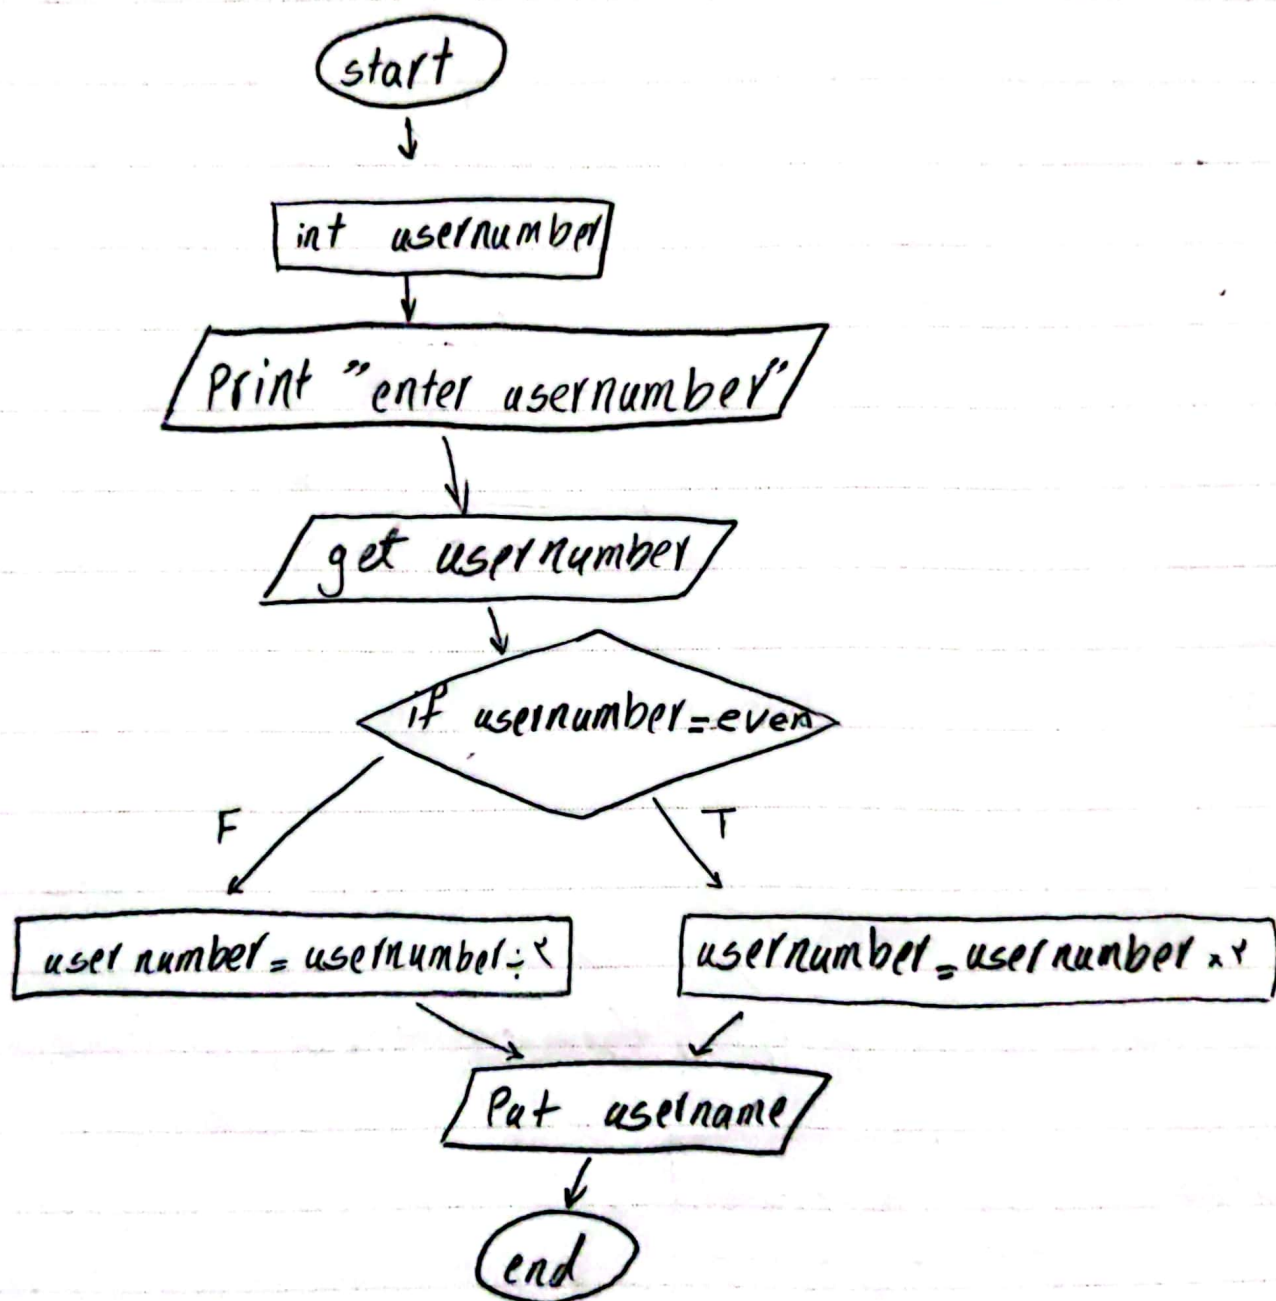 start
int usernumber
Print "enter usernumber"
get usernumber
if usernumber=even
F
T
user number = usernumber÷۲
usernumber = usernumber × ۲
Put username
end